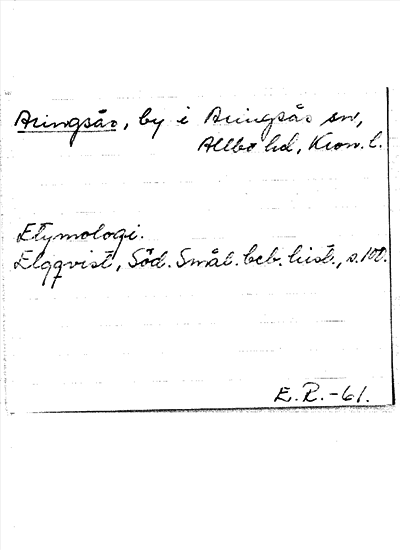 Aringsås, by i Aringsås sn,
Allbo hd, Kron. l.
Etymologi.
Elqqvist, Söd. Smål. beb. hist., s. 100.
E. R. -61.